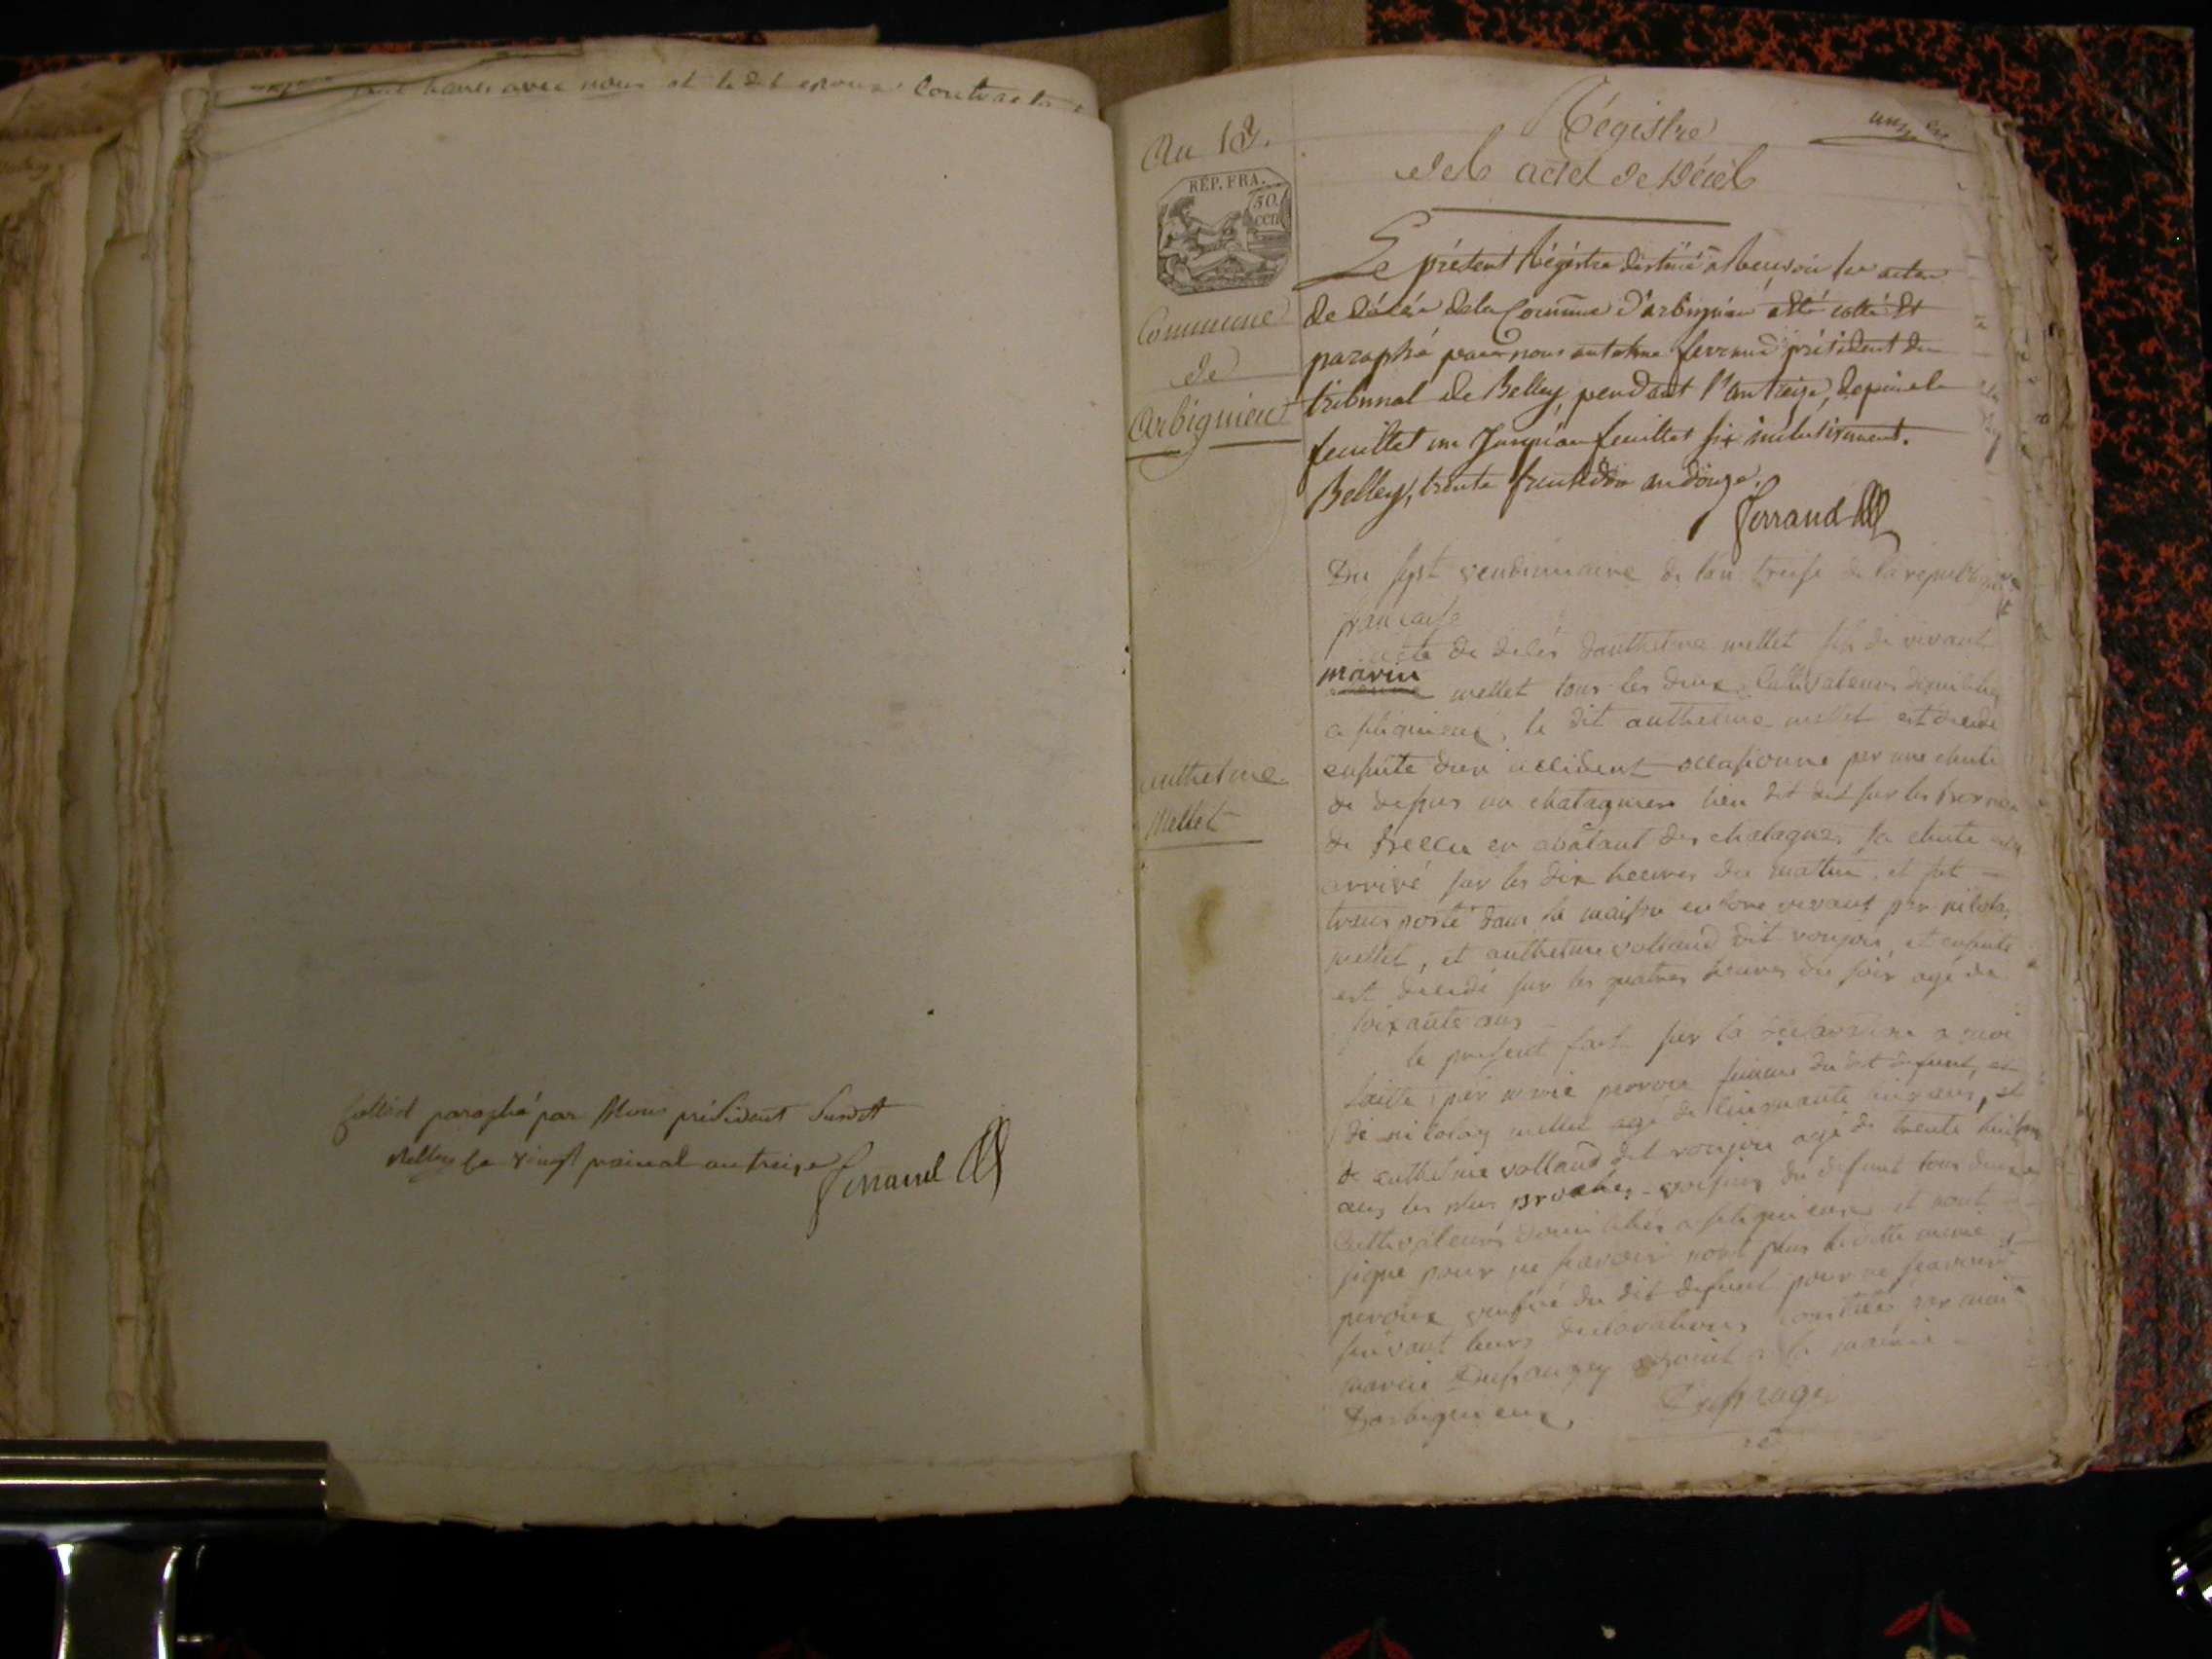 avec nous et le dit epoux
Collé et paraphé par Nous président Susdit
Belley le vingt prairial an treize Ferrand
An 13.
RÉP. FRA.
50
cen
Commune
de
Arbignieu
Registre
des actes de Décès
un
Le présent Régistre destiné a Recevoir les actes
de décès de la Commune d'arbignieu a été cotté Et
paraphé par nous antelme ferrand président du
tribunal de Belley, pendant l'an treize, depuis le
feuillet un Jusqu'au feuillet six inclusivement.
Belley, trente fructidor an douze.
Ferrand
Du sept vendemiaire de lan treise de la republique
francaise
acte de décés danthelme mellet fils de vivant
marin mellet tous les deux Cultivateurs
a le dit anthelme mellet est décédé
ensuite dun accident occasionné par une chute
de dessus un chatagniers lieu dit sur les
de en abatant des chatagnes sa chute
arrivé sur les dix heures du mattin et fut
transporté dans sa maison encore vivant par nicolas
mellet, et anthelme volland dit et ensuite
est décédé sur les quatres heures du soir agé de
soixante ans
anthelme
Mellet
le present fait sur la declaration a moi
faitte par femme du dit defunt, et
de nicolas mellet agé de cinquante ans, et
de anthelme volland dit agé de trente huit
ans les plus proches voisins du defunt tous deux
Cultivateurs a et nont
signe pour ne scavoir non plus
du dit defunt pour ne scavoir
suivant leurs declarations par moi
adjoint a la mairie
Darbignieux